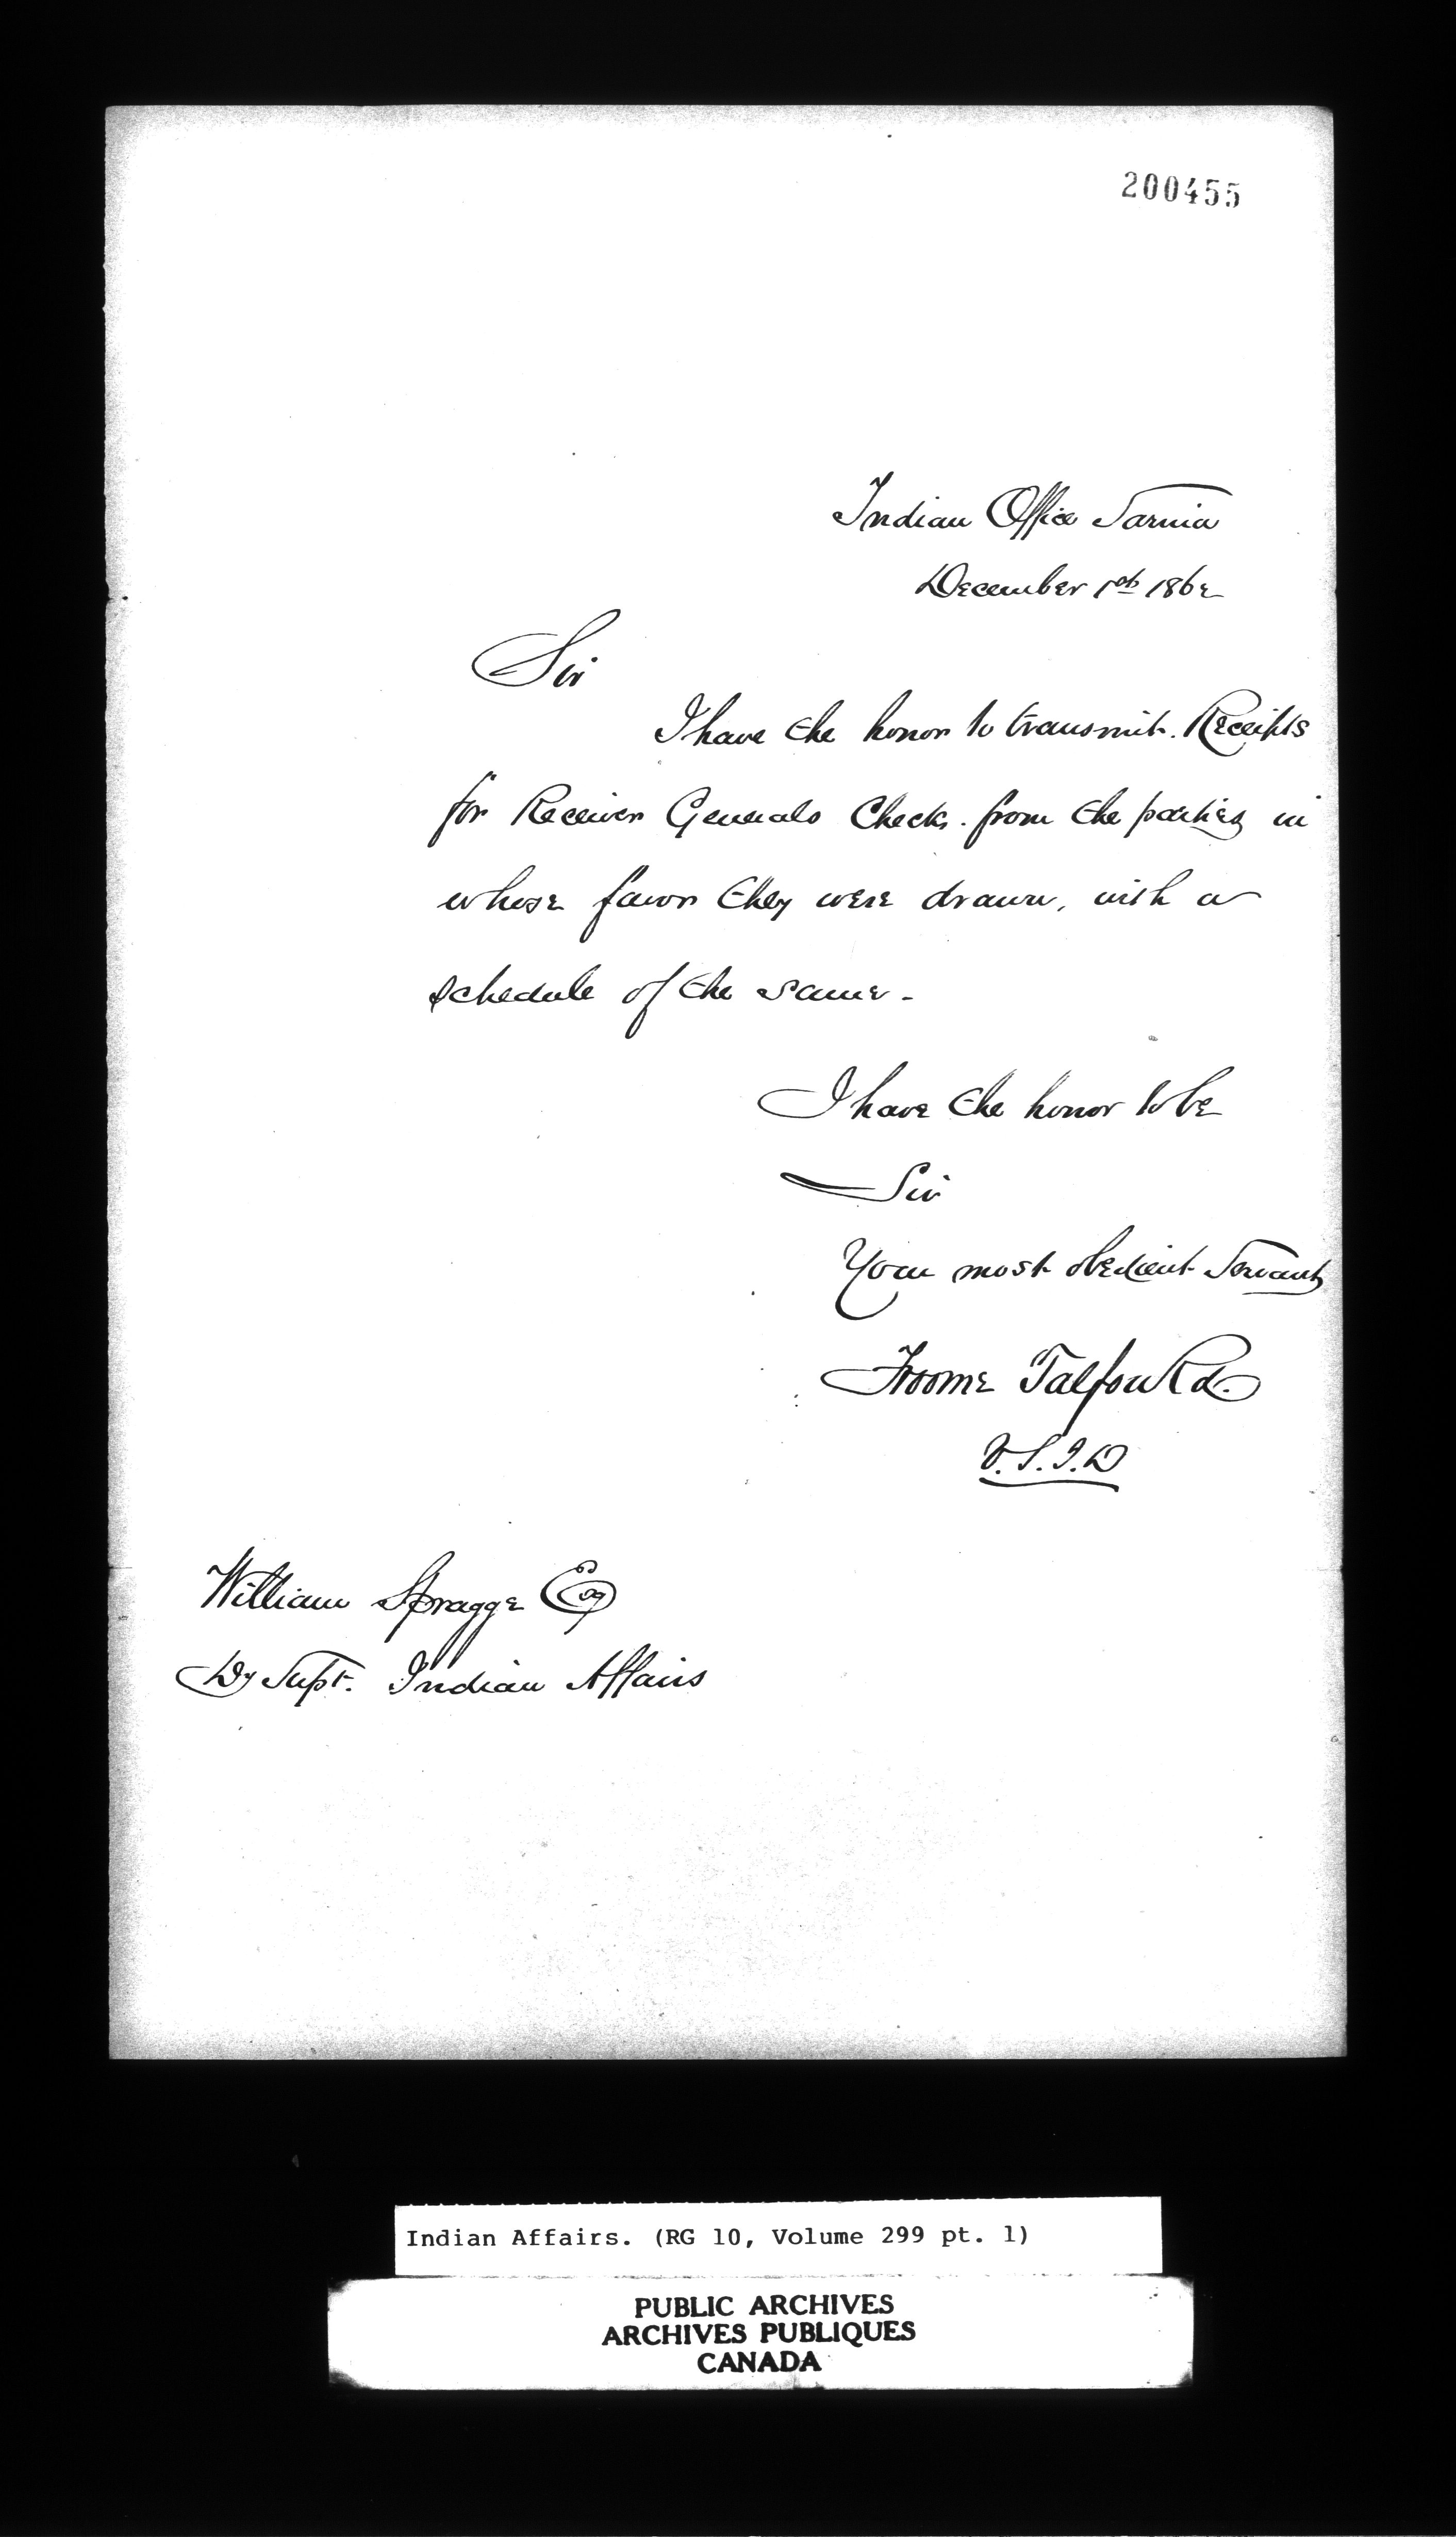 200455
Indian Office Sarnia
December 1st 1862
Sir
I have the honor to transmit. Receipts
for Receiver Generals Checks. from the parties in
whose favor they were drawn, with a
schedule of the same.
I have the honor to be
Sir
Your most obedient Servant
Froome Talfourd.
V.S.I.D
William Spragge Esq
Dy Supt. Indian Affairs
Indian Affairs. (RG 10, Volume 299 pt. 1)
PUBLIC ARCHIVES
ARCHIVES PUBLIQUES
CANADA